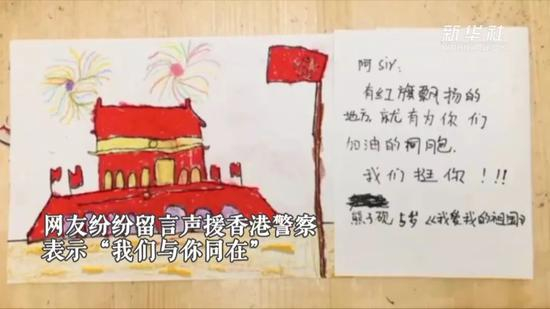 新华社
阿 Sir:
有红旗飘扬的
地方,就有为你们
加油的同胞.
我们挺你!!!
熊子砚 5岁 《我爱我的祖国》
网友纷纷留言声援香港警察
表示“我们与你同在”